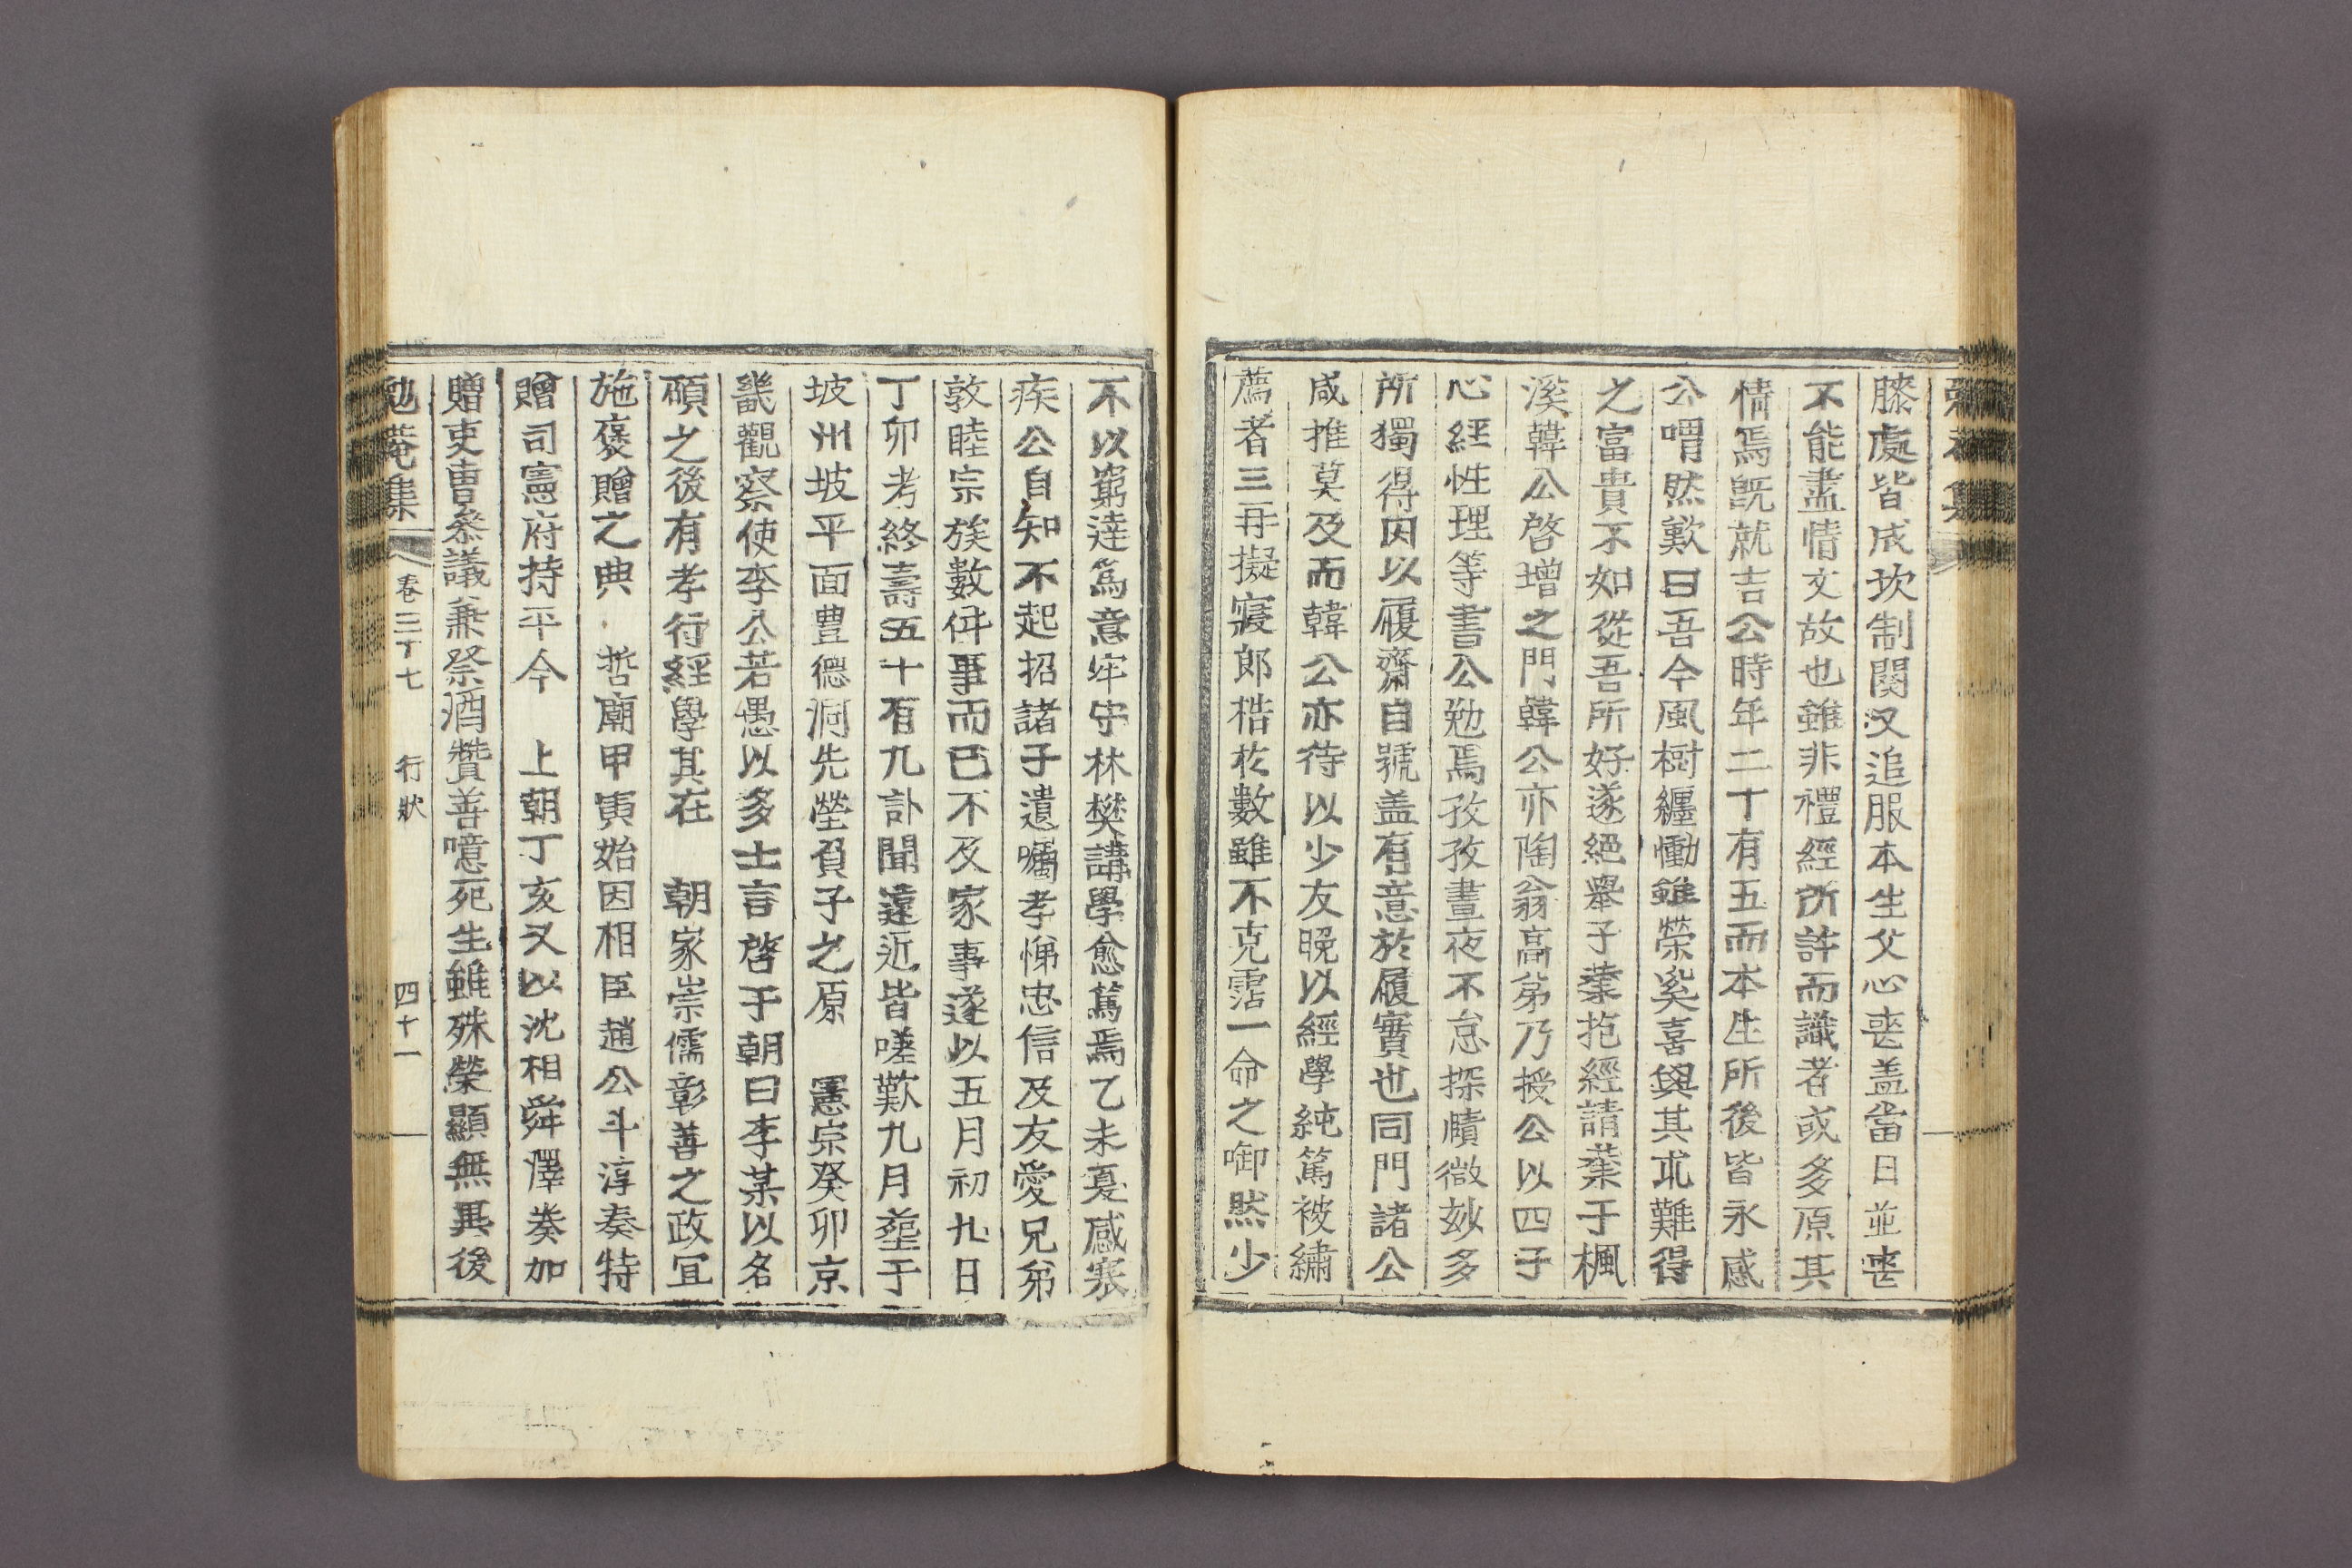 膝處皆成坎制闋又追服本生父心喪盖當日並喪
不能盡情文故也雖非禮經所許而識者或多原其
情焉旣就吉公時年二十有五而本生所後皆永感
公喟然歎曰吾今風樹纏慟雖榮奚喜與其求難得
之富貴不如從吾所好遂絕擧子業抱經請業于楓
溪韓公啓增之門韓公亦陶翁高弟乃授公以四子
心經性理等書公勉焉孜孜晝夜不怠探賾微妙多
所獨得因以履齋自號盖有意於履實也同門諸公
咸推莫及而韓公亦待以少友晩以經學純篤被繡
薦者三再擬寢郞梏於數雖不克霑一命之啣然少
不以窮達篤意牢守林樊講學愈篤焉乙未憂感寒
疾公自知不起招諸子遺囑孝悌忠信及友愛兄弟
敦睦宗族數件事而已不及家事遂以五月初九日
丁卯考終壽五十有九訃聞遠近皆嗟歎九月葬于
坡州坡平面豊德洞先塋負子之原 憲宗癸卯京
畿觀察使李公若愚以多士言啓于朝曰李某以名
碩之後有孝行經學其在 朝家崇儒彰善之政宜
施褒贈之典 哲廟甲寅始因相臣趙公斗淳奏特
贈司憲府持平今 上朝丁亥又以沈相舜澤奏加
贈吏曹叅議兼祭酒贊善噫死生雖殊榮顯無異後
勉菴集 卷三十七 行狀 四十一